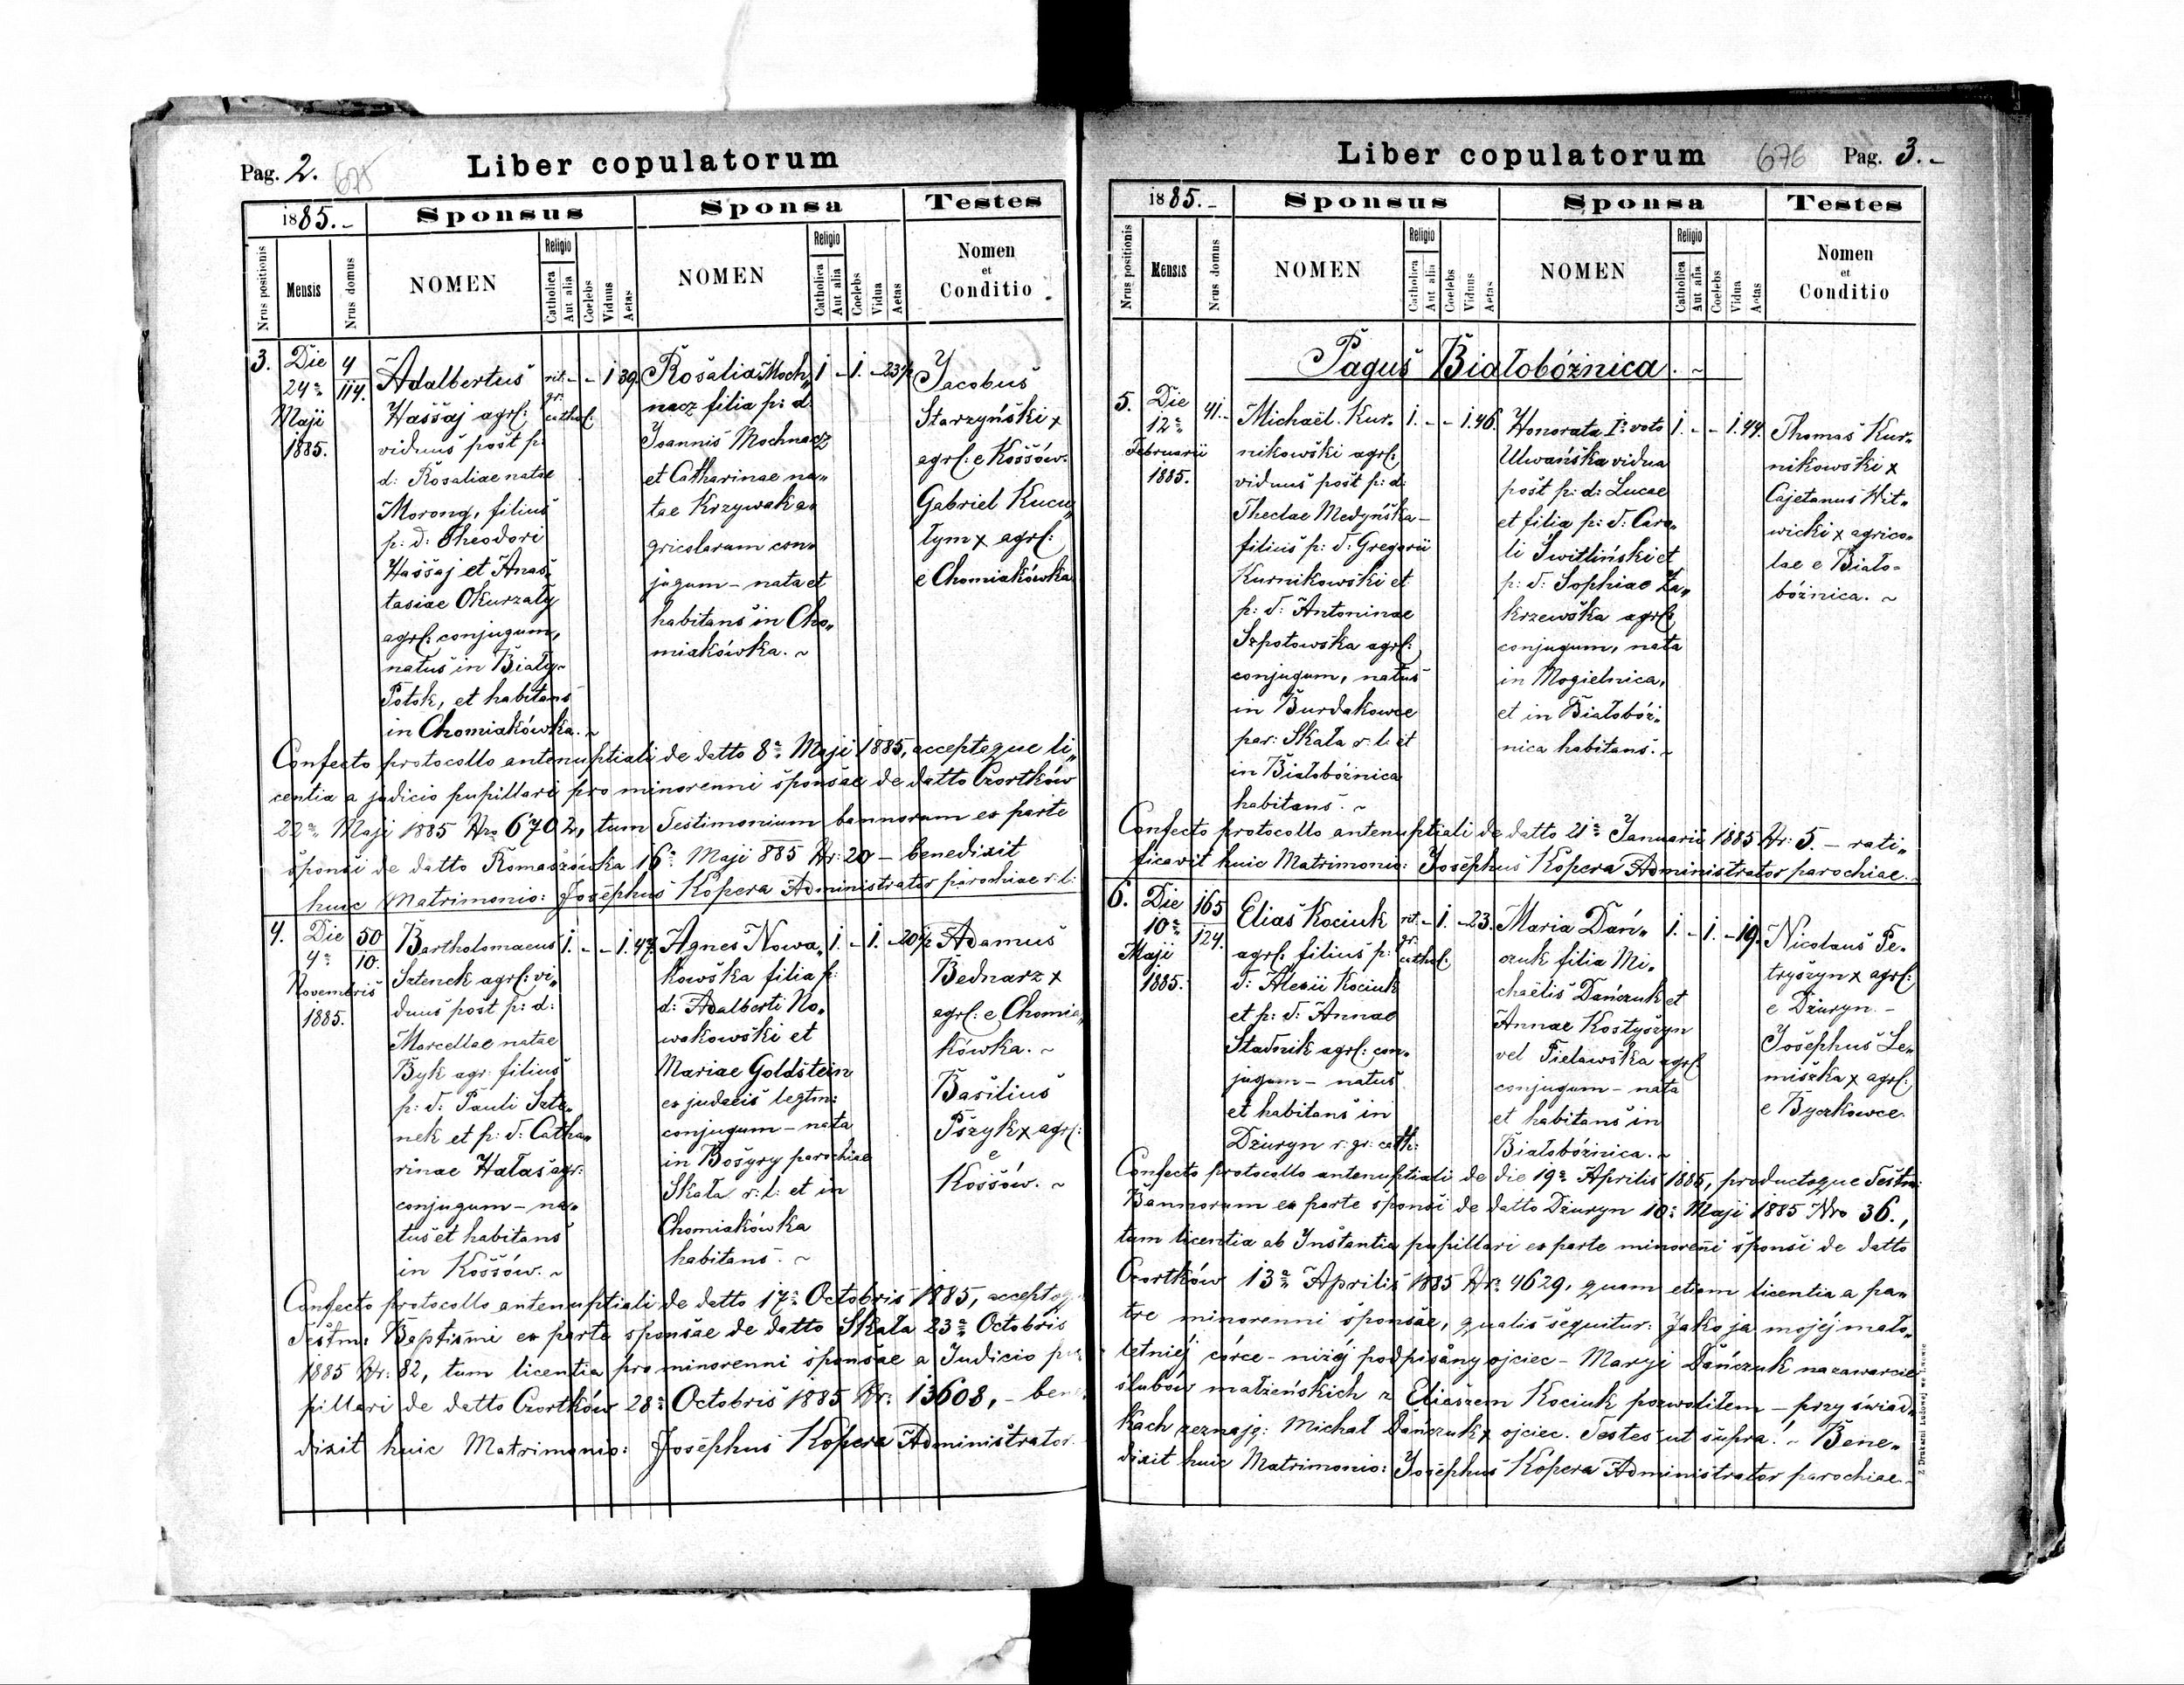 Pag. 2. 675
Liber copulatorum
1885.-
Sponsus
Sponsa
Testes
Nrus positionis
Mensis
Nrus domus
NOMEN
Religio
Catholica
Aut alia
Coelebs
Viduus
Aetas
NOMEN
Religio
Catholica
Aut alia
Coelebs
Vidua
Aetas
Nomen
et
Conditio
3.
Die
24a
Maji
1885.
4
114.
Adalbertus
Hassaj agrf:
viduus post p:
d: Rosaliae natae
Morong, filius
p: d: Theodori
Hassaj et Anas„
tasiae Okurzały
agrf: conjugum,
natus in Biały-
Potok, et habitans
in Chomiakówka. ~
rit. - - 1 39.
gr.
cathol:
Rosalia Moch„
nacz filia p: d:
Joannis Mochnacz
et Catharinae na„
tae Krzywak a„
gricolarum con„
jugum - nata et
habitans in Cho„
miakówka. ~
1 - 1. - 23 1/2
Jacobus
Starzyński x
agrf: e Kossów.
Gabriel Kucu„
łym x agrf:
e Chomiakówka
Confecto protocollo antenuptiali de datto 8a Maji 1885, acceptaque li„
centia a judicio pupillari pro minorenni sponsae de datto Czortków
22a Maji 1885 Nro 6702, tum Testimonium bannorum ex parte
sponsi de datto Romaszówka 16a Maji 885 Nr: 20 - benedixit
huic Matrimonio: Josephus Kopera Administrator parochiae r: l:
4.
Die
4a
Novembris
1885.
50
10.
Bartholomaeus
Sztenek agrf: vi„
duus post p: d:
Marcellae natae
Byk agr: filius
p: d: Pauli Szte„
nek et p: d: Catha„
rinae Hałas agr:
conjugum - na„
tus et habitans
in Kossów. ~
1. - - 1. 47.
Agnes Nowa„
kowska filia p:
d: Adalberti No„
wakowski et
Mariae Goldstein
ex judaeis legtm:
conjugum - nata
in Bosyry parochiae
Skała r: l: et in
Chomiakówka
habitans. ~
1. - 1. - 20 1/2
Adamus
Bednarz x
agrf: e Chomia„
kówka. ~
Basilius
Pszyk x agrf:
e
Kossów. ~
Confecto protocollo antenuptiali de datto 17a Octobris 1885,
Testm: Baptismi ex parte sponsae de datto Skała 23a Octobris
1885 Nr: 82, tum licentia pro minorenni sponsae a Judicio pu
pillari de datto Czortków 28a Octobris 1885 Nr: 13608, - bene
dixit huic Matrimonio: Josephus Kopera Administrator
Liber copulatorum
676
Pag. 3.-
1885.-
Sponsus
Sponsa
Testes
Nrus positionis
Mensis
Nrus domus
NOMEN
Religio
Catholica
Aut alia
Coelebs
Viduus
Aetas
NOMEN
Religio
Catholica
Aut alia
Coelebs
Vidua
Aetas
Nomen
et
Conditio
Pagus Białobóżnica. ~
5.
Die
12a
Februarii
1885.
41.
Michaël Kur„
nikowski agrf:
viduus post p: d:
Theclae Medyńska -
filius p: d: Gregorii
Kurnikowski et
p: d: Antoninae
Szpotowska agrf:
conjugum, natus
in Burdakowce
par: Skała r: l: et
in Białobóżnica
habitans. ~
1. - - 1. 46.
Honorata Io voto
Ulwańska vidua
post p: d: Lucae
et filia p: d: Caro„
li Świtliński et
p: d: Sophiae Za„
krzewska agrf:
conjugum, nata
in Mogielnica,
et in Białobóż„
nica habitans. ~
1. - - 1. 44.
Thomas Kur„
nikowski x
Cajetanus Wit„
wicki x agrico„
lae e Biało-
bóżnica. ~
Confecto protocollo antenuptiali de datto 21a Januarii 1885 Nr: 5. - rati„
ficavit huic Matrimonio: Josephus Kopera Administrator parochiae.
6.
Die
10a
Maji
1885.
165
124.
Elias Kociuk
agrf. filius p:
d: Alexii Kociuk
et p: d: Annae
Stadnik agrf: con„
jugum - natus
et habitans in
Dżuryn r: gr: cath:
rit. - 1. - 23.
gr.
cathol:
Maria Dań„
czuk filia Mi„
chaëlis Dańczuk et
Annae Kostyszyn
vel Pielawska agrf:
conjugum - nata
et habitans in
Białobóżnica. ~
1. - 1. - 19.
Nicolaus Pe„
tryszyn x agrf:
e Dżuryn. -
Josephus Le„
miszka x agrf:
e Byczkowce.
Confecto protocollo antenuptiali de die 19a Aprilis 1885, productoque Testm:
Bannorum ex parte sponsi de datto Dżuryn 10a Maji 1885 Nro 36.,
tum licentia ab Instantia pupillari ex parte minorenni sponsi de datto
Czortków 13a Aprilis 1885 Nr: 4629, quam etiam licentia a pa„
tre minorenni sponsae, qualis sequitur: Jako ja mojéj mało„
letniéj córce - niżéj podpisany ojciec - Maryi Dańczuk na zawarcie
ślubów małżeńskich z Eliaszem Kociuk pozwoliłem - przy świad„
kach zeznaję: Michał Dańczuk x ojciec. Testes ut supra! ~ Bene„
dixit huic Matrimonio: Josephus Kopera Administrator parochiae.
Z Drukarni Ludowej we Lwowie